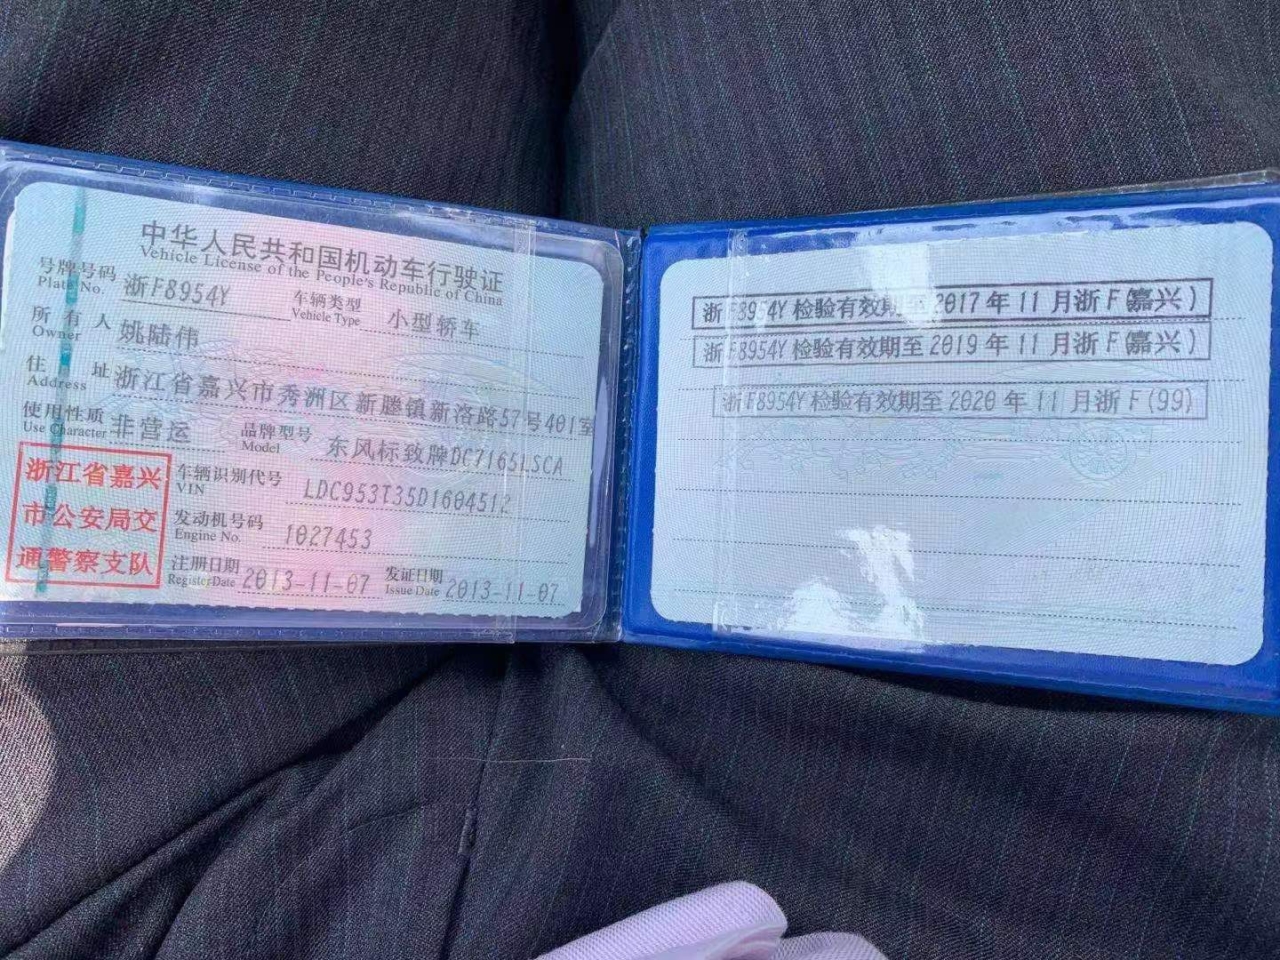 中华人民共和国机动车行驶证
Vehicle License of the People's Republic of China
号牌号码 浙F8954Y 车辆类型 小型轿车
Plate No. Vehicle Type
所有人 姚陆伟
Owner
住址 浙江省嘉兴市秀洲区新塍镇新洛路57号401室
Address
使用性质 非营运 品牌型号 东风标致牌DC7165LSCA
Use Character Model
浙江省嘉兴
市公安局交
通警察支队
车辆识别代号 LDC953T35D1604512
VIN
发动机号码 1027453
Engine No.
注册日期 2013-11-07 发证日期 2013-11-07
Register Date Issue Date
浙F8954Y检验有效期至2017年11月浙F(嘉兴)
浙F8954Y检验有效期至2019年11月浙F(嘉兴)
浙F8954Y检验有效期至2020年11月浙F(99)